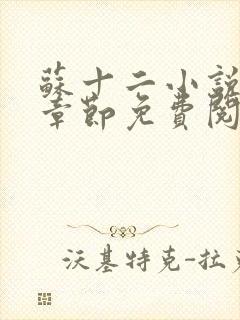 蘇十二小說
章節免費閱
沃基特克-拉